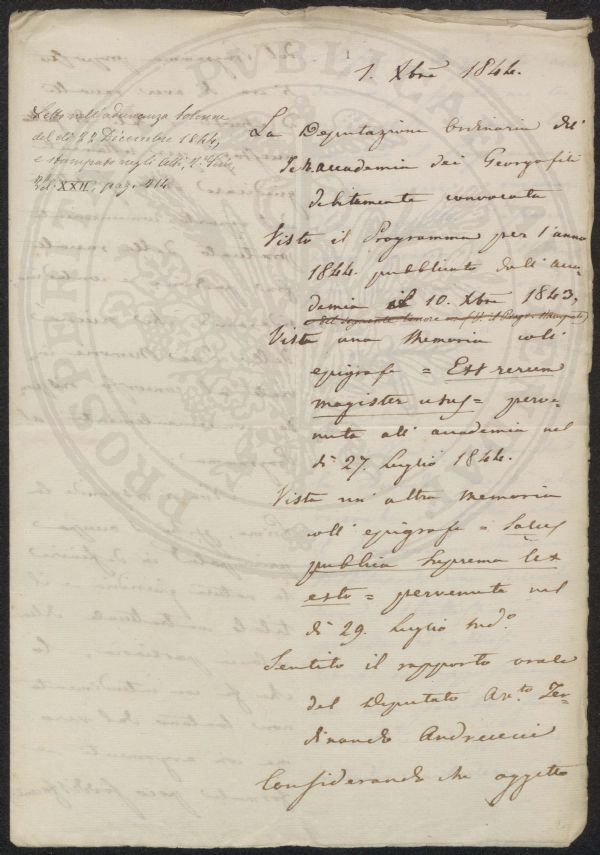 1
1. Xbre 1844.
Letto nell'adunanza solenne
del dì 22 Dicembre 1844,
e stampato negli Atti, 1a Serie
Vol. XXII, pag. 414
La Deputazione Ordinaria del
I e R. accademia dei Georgofili
debitamente convocata
Visto il Programma per l'anno
1844. pubblicato dall'acca-
demia il 10. Xbre 1843,
del seguente tenore = (V. il Progr. stampato)
Vista una Memoria coll'
epigrafe = Est rerum
magister usus = perve-
nuta all'accademia nel
dì 27. Luglio 1844.
Vista un'altra Memoria
coll'epigrafe = Salus
publica suprema lex
esto = pervenuta nel
dì 29. Luglio sudo.
Sentito il rapporto orale
del Deputato Avto. Fer-
dinando Andreucci
Considerando che oggetto
PUBLICAE
PROSPERITATI